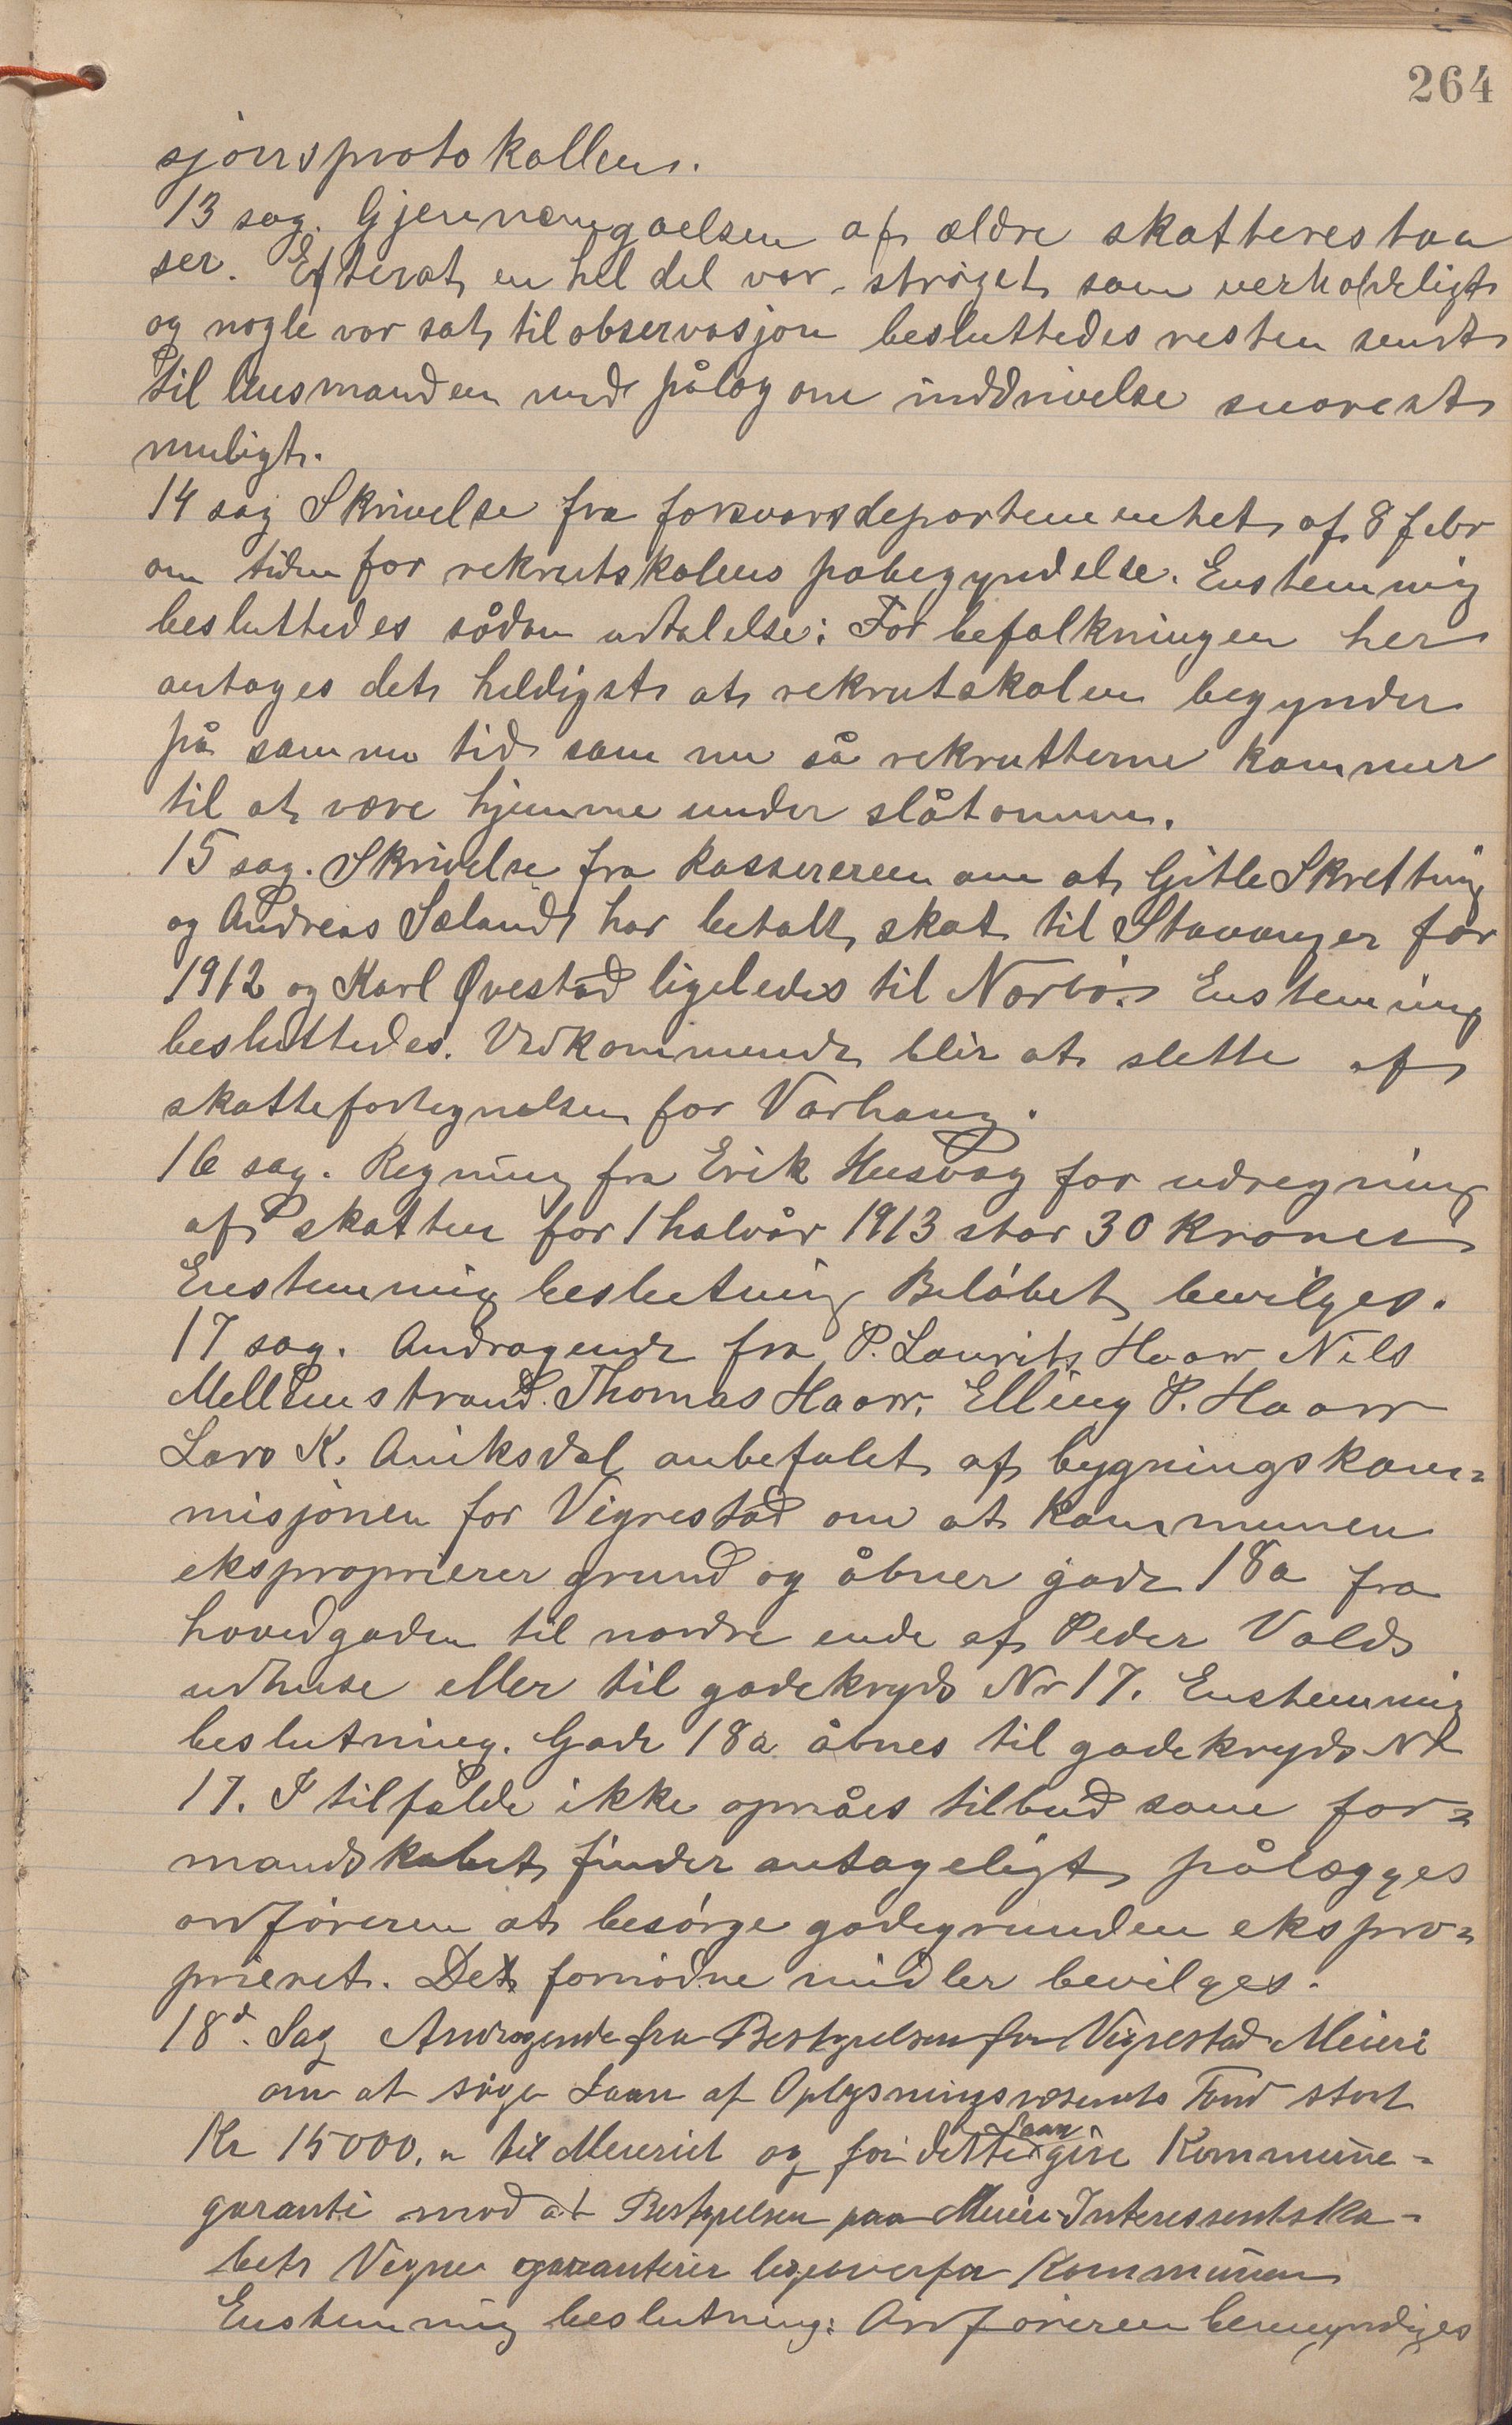 264
sjonsprotokollen.
13 sag. Gjennemgaaelsen af ældre skatterestan
ser. Efterat en hel del var strøget som uerholdeligt
og nogle var sat til observasjon besluttedes resten sendt
til lensmanden med pålæg om inddrivelse snarest
muligt.
14 sag Skrivelse fra forsvarsdepartementet af 8 febr
om tiden for rekrutskolens påbegyndelse. Enstemmig
besluttedes sådan udtalelse: For befolkningen her
antages det heldigst at rekrutskolen begynder
på samme tid som nu så rekrutterne kommer
til at være hjemme under slåtonnen.
15 sag. Skrivelse fra kassereren om at Gitle Skretting
og Andreas Sæland har betalt skat til Stavanger for
1912 og Karl Qvestad ligeledes til Nærbø. Enstemmig
besluttedes. Vedkommende blir at slette af
skattefortegnelsen for Varhaug.
16 sag. Regning fra Erik Husvæg for udregning
af skatten for 1 halvår 1913 stor 30 kroner
Enstemmig beslutning Beløbet bevilges.
17 sag. Andragende fra P. Laurits Haar Nils
Mellemstrand. Thomas Haar, Elling P. Haar
Lars K. Aniksdal anbefalet af bygningskom=
misjonen for Vigrestad om at kommunen
eksproprierer grund og åbner gade 18a fra
hovedgaden til nordre ende af Peder Valds
udhuse eller til gadekryds Nr 17. Enstemmig
beslutning. Gade 18a åbnes til gadekryds Nr
17. I tilfælde ikke opnåes tilbud som for=
mandskabet finder antageligt pålægges
ordføreren at besørge gadegrunden ekspro=
prieret. Det fornødne midler bevilges.
18d. Sag Andragende fra Bestyrelsen for Vigrestad Meieri
om at søge Laan af Oplysningsvæsenets Fond stort
Kr 15000,„ til Meieriet og for dette Laan give Kommune-
garanti mod at Bestyrelsen paa Meieri-Interessentska-
bets Vegne garanterer ligeoverfor Kommunen
Enstemmig beslutning: Ordføreren bemyndiges